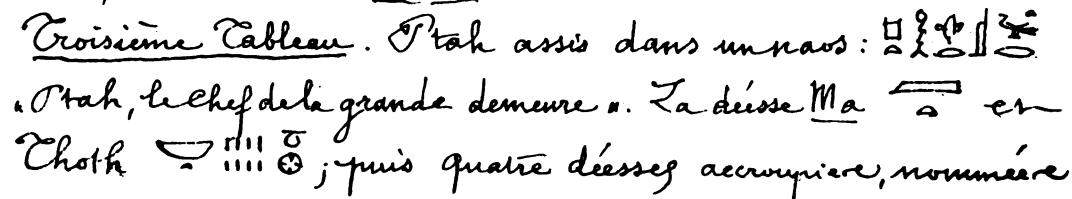 Troisième Tableau. Ptah assis dans un naos :
« Ptah, le chef de la grande demeure ». La déesse Ma et
Thoth ; puis quatre déesses accroupies, nommées